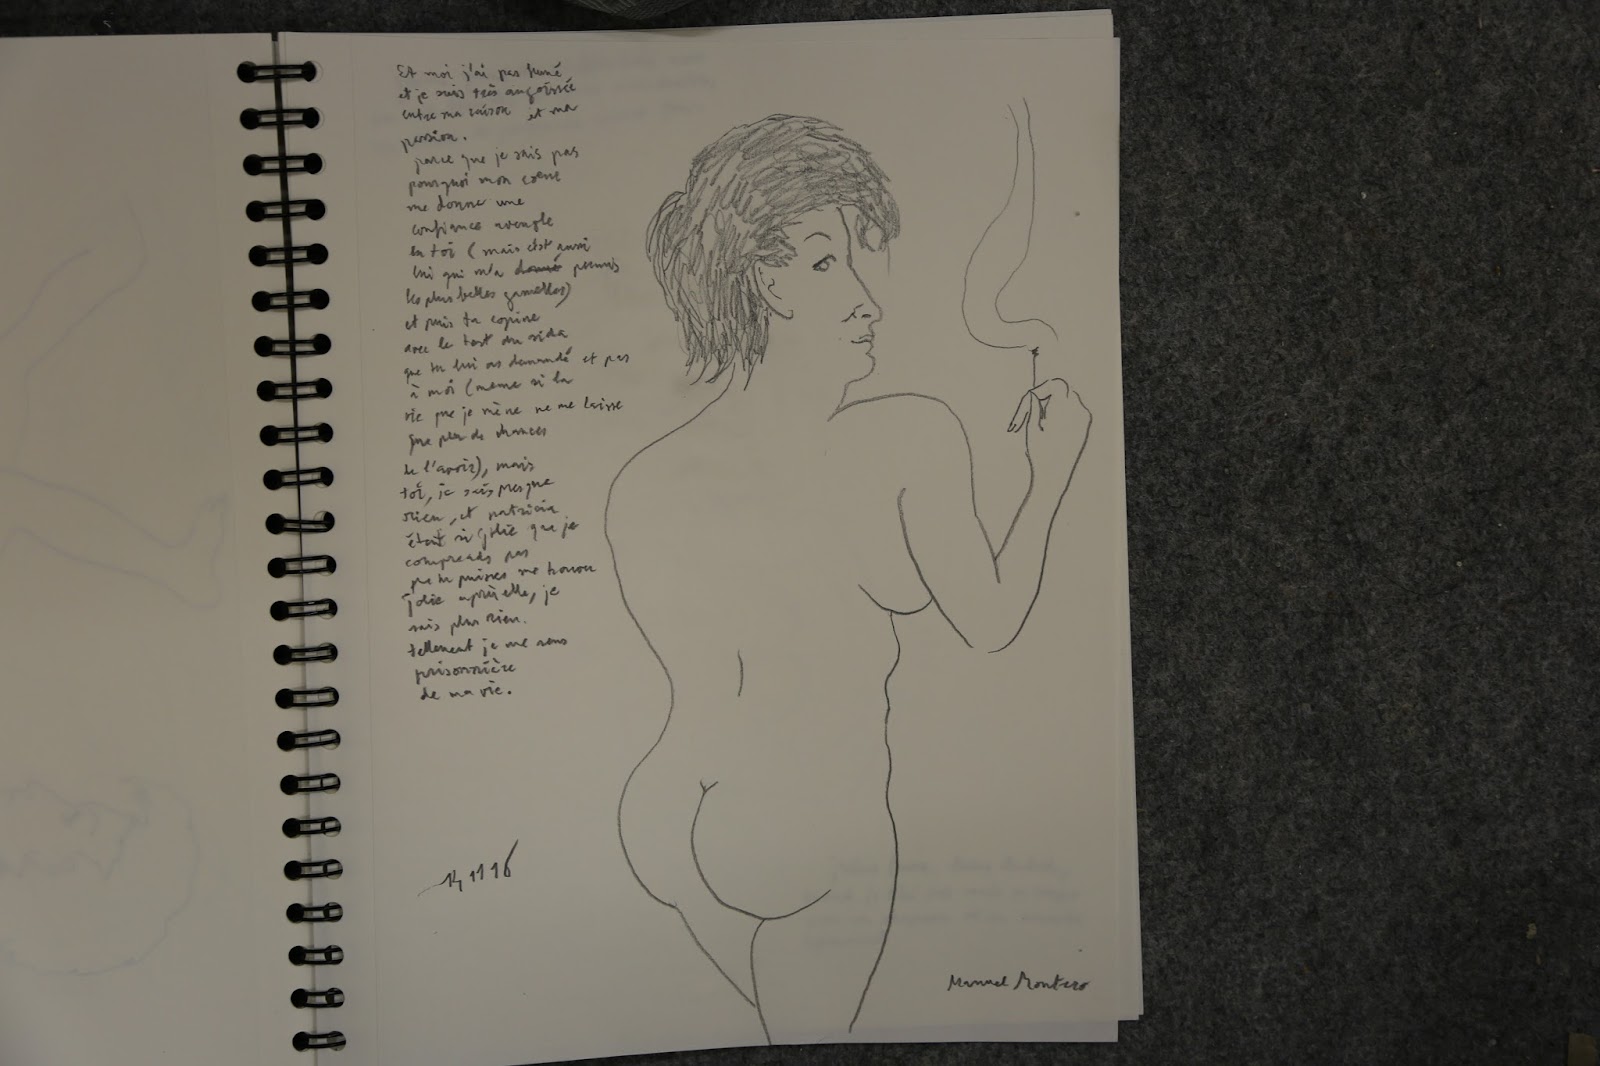 Et moi j'ai pas fumé
et je suis très angoissée
entre ma raison et ma
passion.
parce que je sais pas
pourquoi mon coeur
me donne une
confiance aveugle
en toi (mais c'est aussi
lui qui m'a donné permis
les plus belles gamelles)
et puis ta copine
avec le test du sida
que tu lui as demandé et pas
à moi (meme si la
vie que je mène ne me laisse
que peu de chances
de l'avoir), mais
toi, je sais presque
rien, et patricia
était si jolie que je
comprends pas
que tu puisses me trouver
jolie après elle, je
sais plus rien.
tellement je me sens
prisonnière
de ma vie.
14 11 16
Manuel Montero